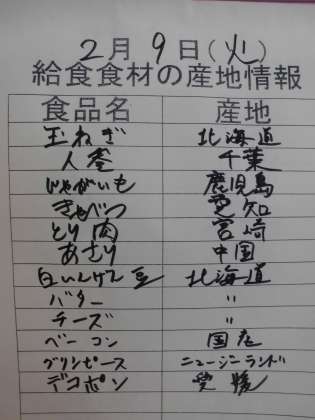 2月9日(火)
給食食材の産地情報
食品名 産地
玉ねぎ 北海道
人参 千葉
じゃがいも 鹿児島
きゃべつ 愛知
とり肉 宮崎
あさり 中国
白いんげん豆 北海道
バター 〃
チーズ 〃
ベーコン 国産
グリンピース ニュージーランド
デコポン 愛媛